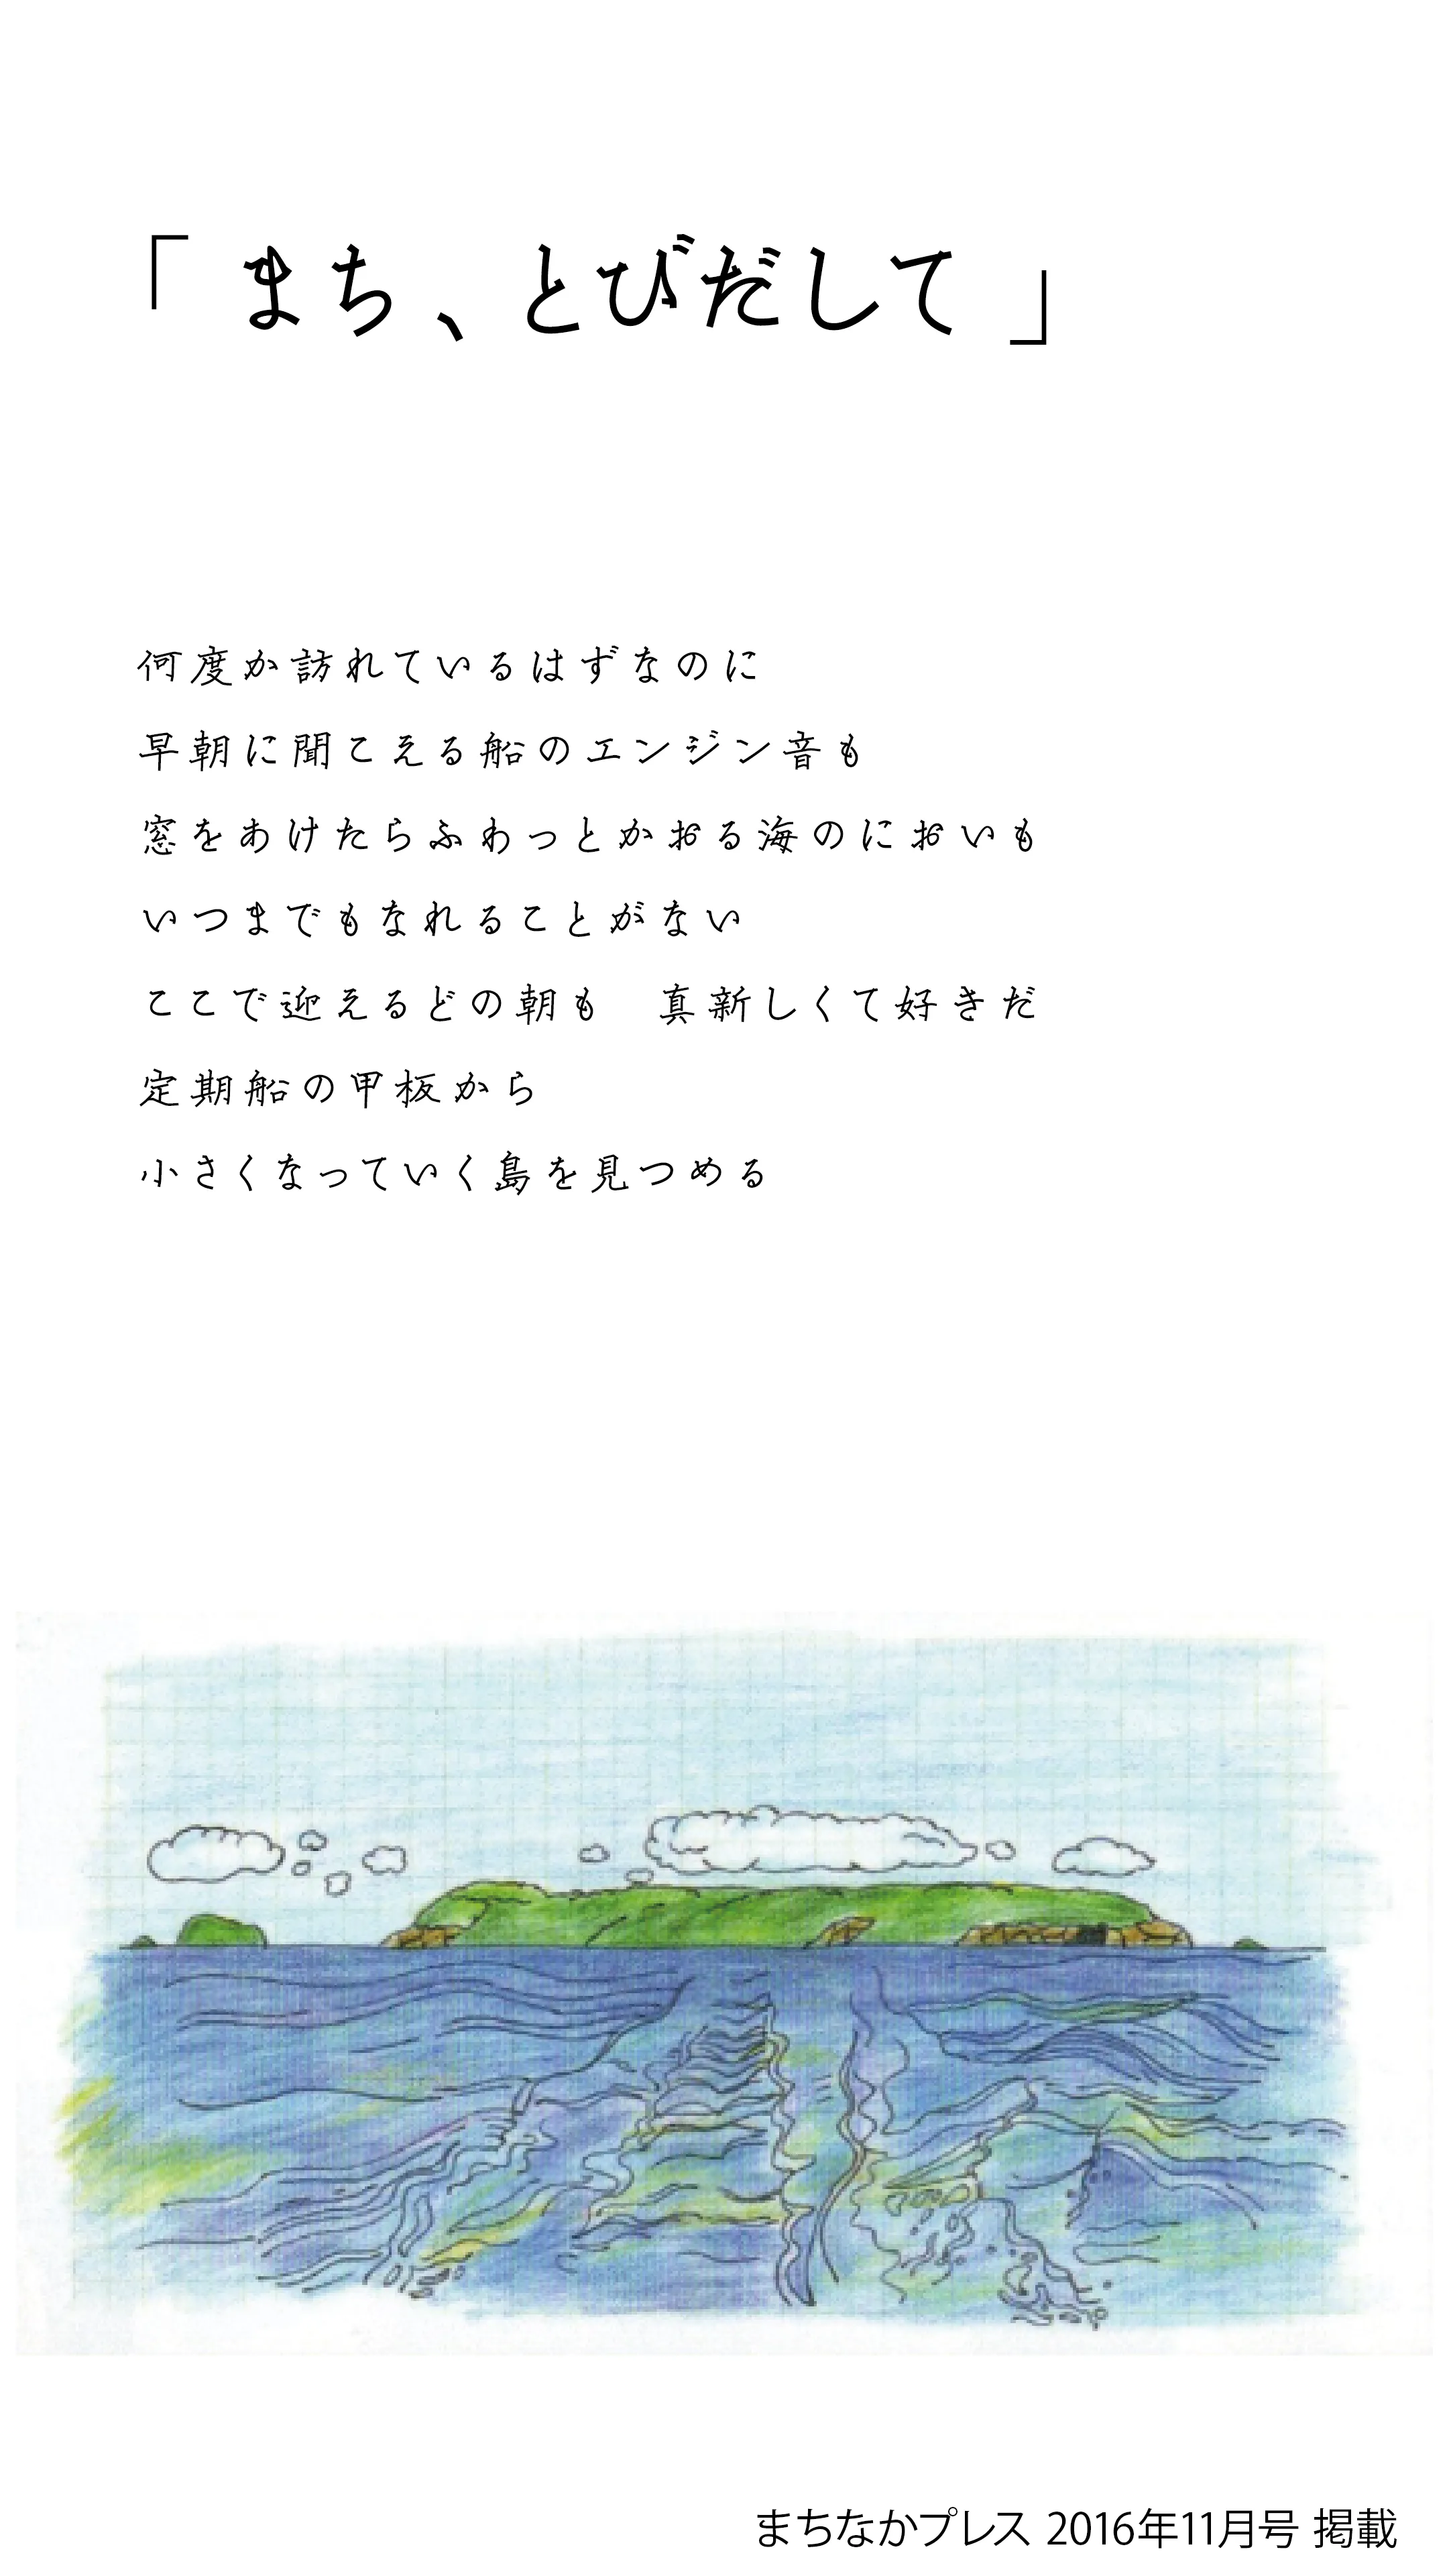 「 まち、とびだして 」
何度か訪れているはずなのに
早朝に聞こえる船のエンジン音も
窓をあけたらふわっとかおる海のにおいも
いつまでもなれることがない
ここで迎えるどの朝も　真新しくて好きだ
定期船の甲板から
小さくなっていく島を見つめる
まちなかプレス 2016年11月号 掲載